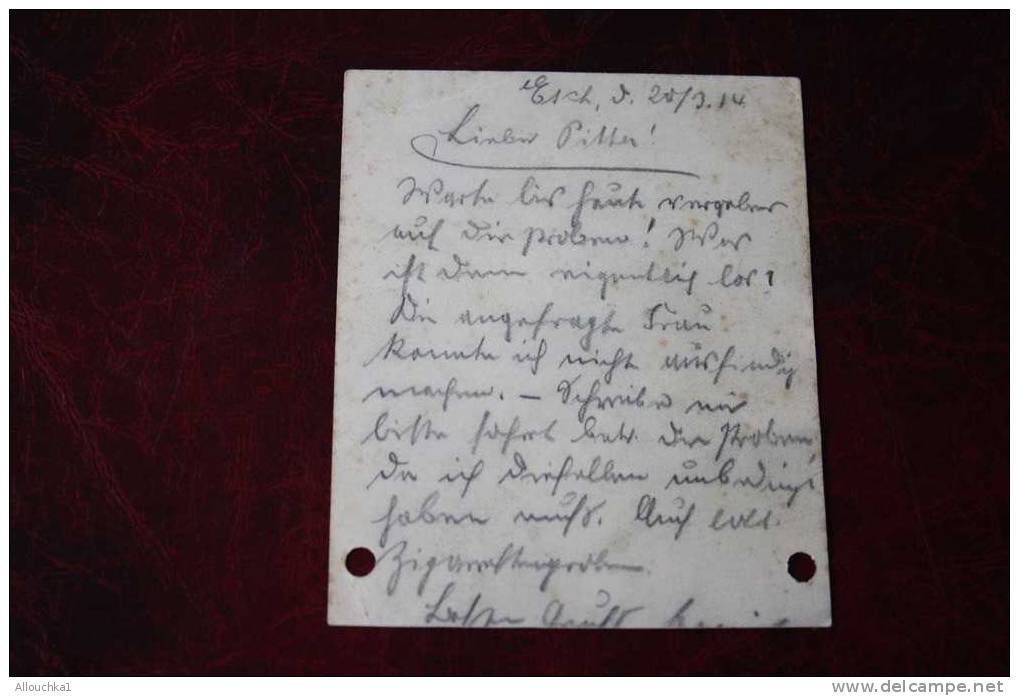 Esch, d. 20/3.14
Lieber Pitter!
Warte bis heute vergebens
auf die Proben! Was
ist denn eigentlich los?
Die angefragte Frau
konnte ich nicht ausfindig
machen. – Schreibe mir
bitte sofort betr. die Proben,
da ich dieselben unbedingt
haben muss. Auch
Zigarettenproben.
Besten Gruss
Allouchka1
delcampe.net